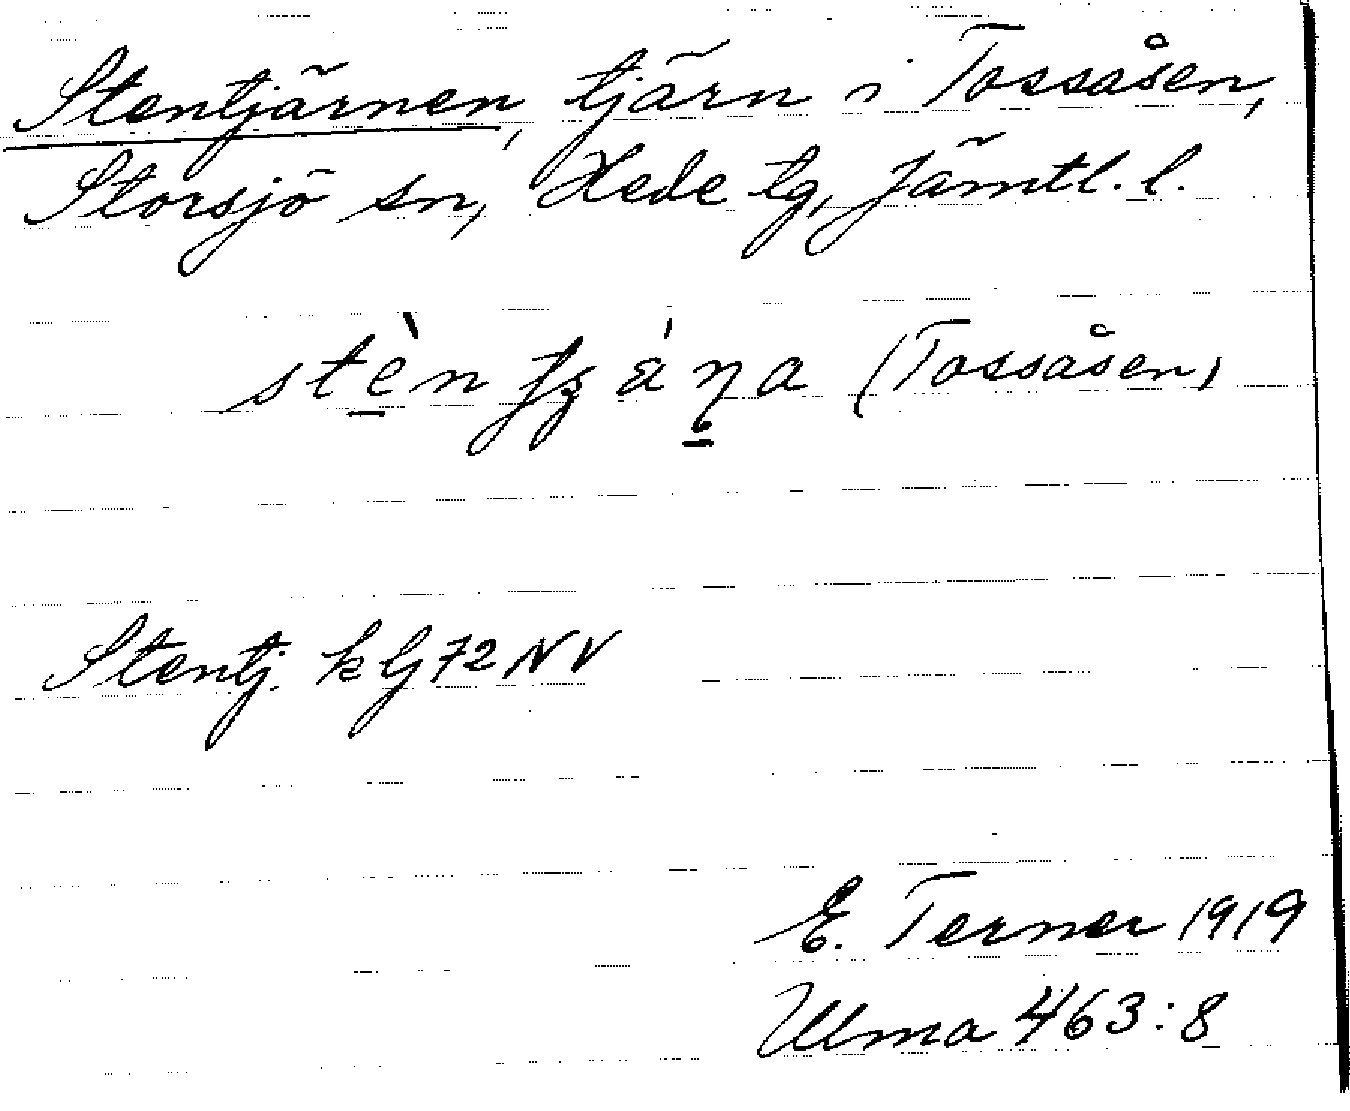 Stentjärnen, tjärn i Tossåsen,
Storsjö sn, Hede tg, Jämtl. l.
(Tossåsen)
Stentj. k G72NV
E. Terner 1919
Ulma 463:8